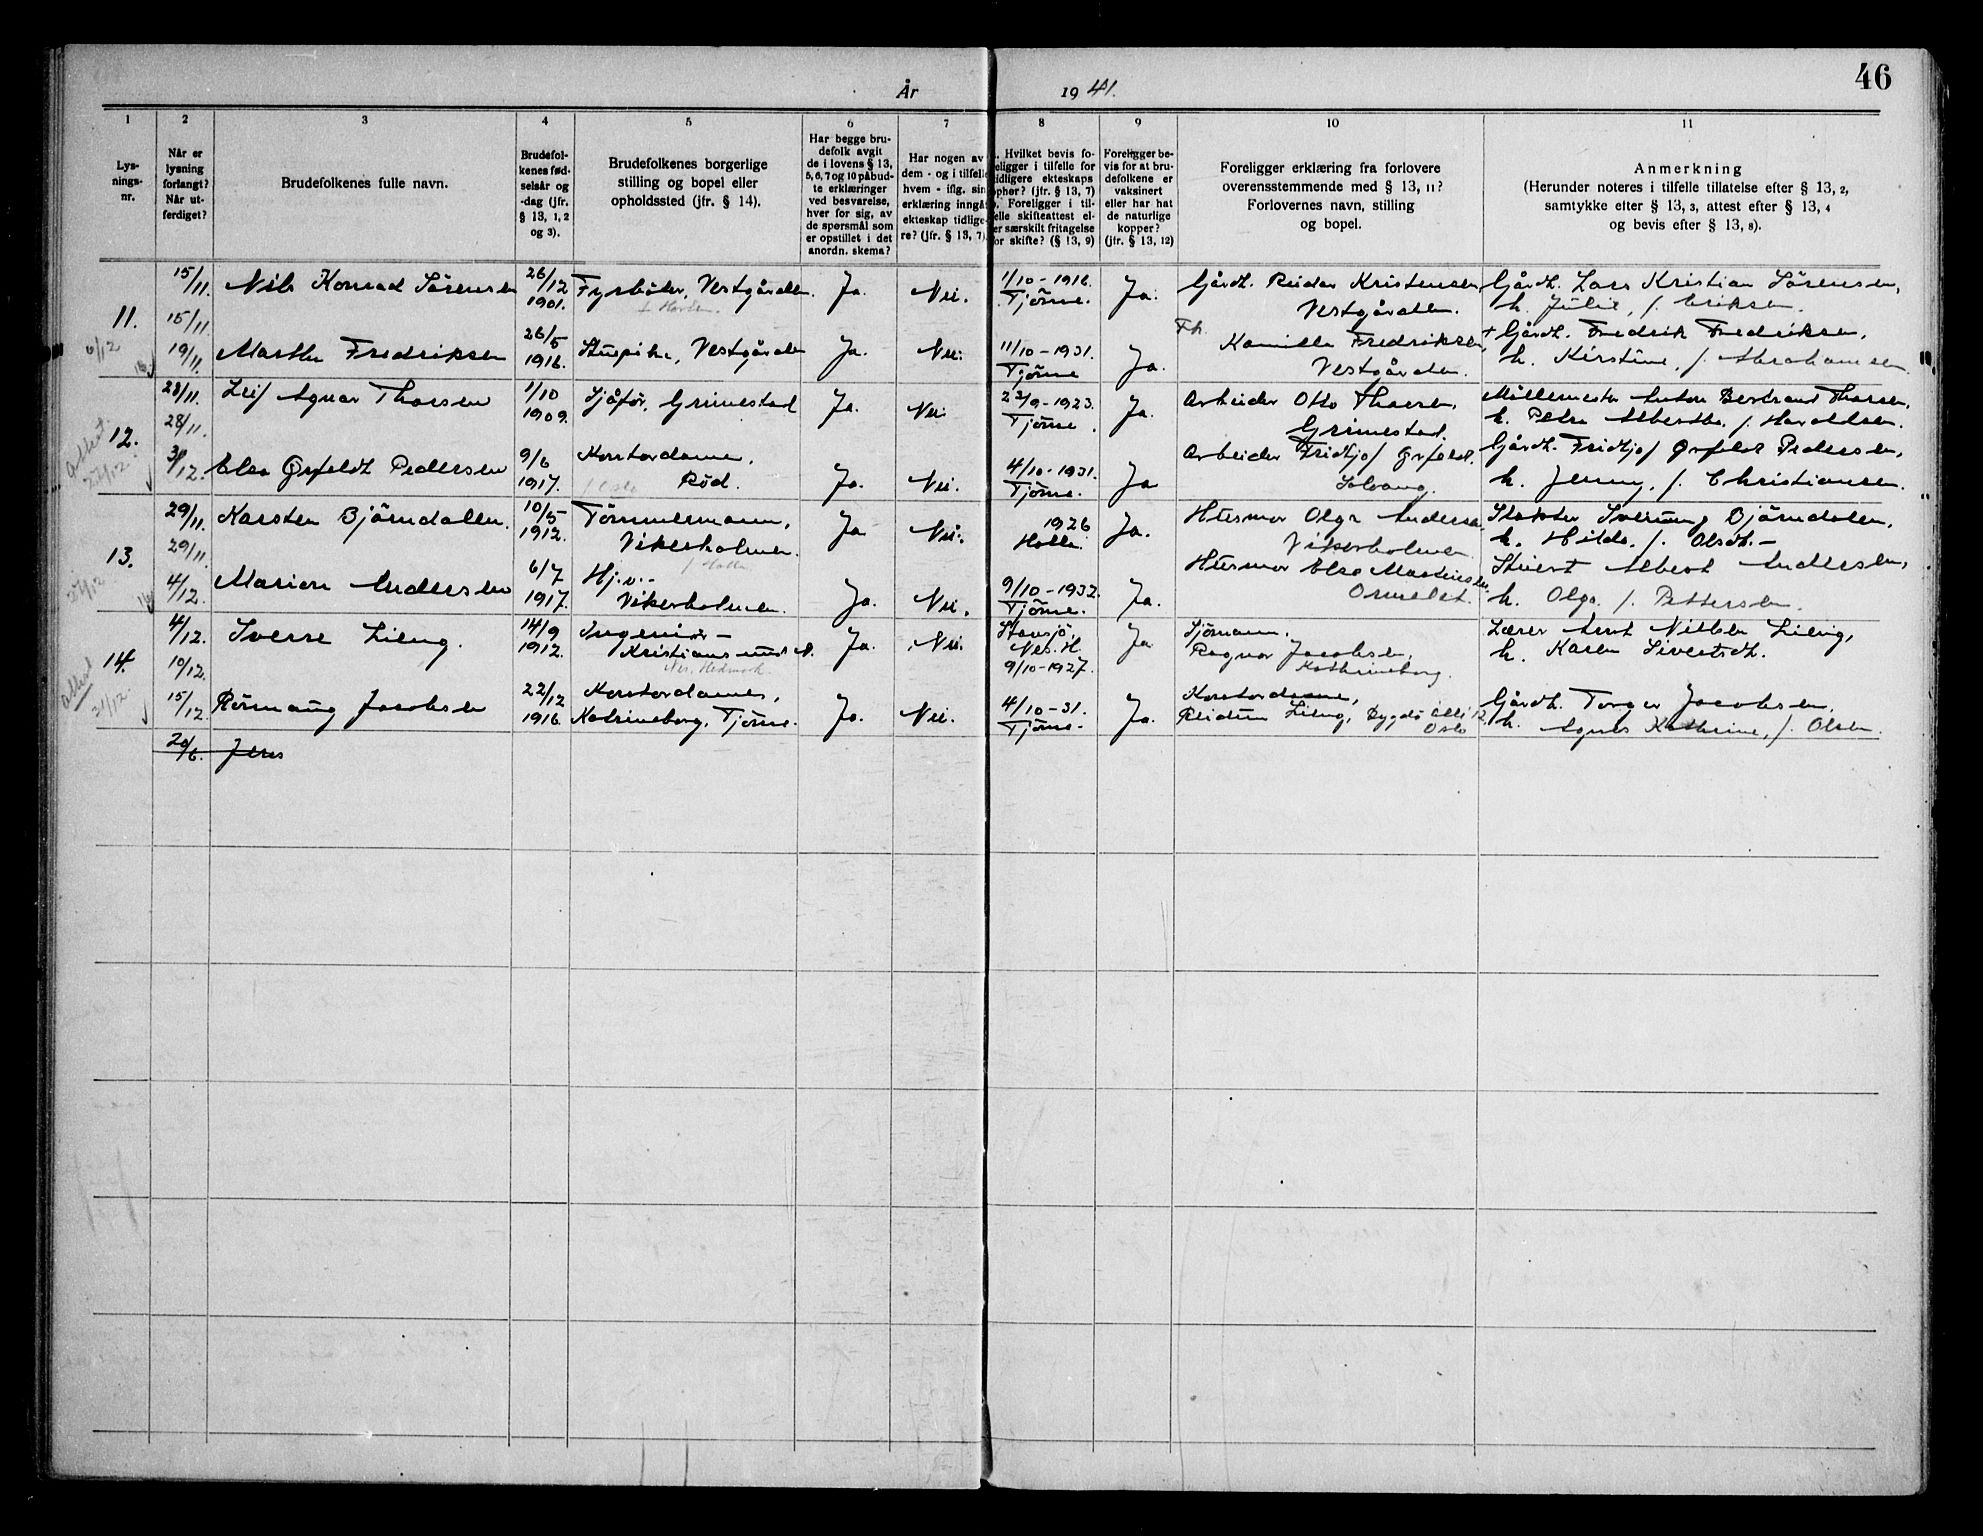 46
År 1941.
1 2 3 4 5 6 7 8 9 10 11
Lys-
nings-
nr.
Når er
lysning
forlangt?
Når ut-
ferdiget?
Brudefolkenes fulle navn.
Brudefol-
kenes fød-
selsår og
-dag (jfr.
§ 13, 1, 2
og 3).
Brudefolkenes borgerlige
stilling og bopel eller
opholdssted (jfr. § 14).
Har begge bru-
defolk avgit
de i lovens § 13,
5, 6, 7 og 10 påbud-
te erklæringer
ved besvarelse,
hver for sig, av
de spørsmål som
er opstillet i det
anordn. skema?
Har nogen av
dem - og i tilfelle
hvem - iflg. sin
erklæring inngåt
ekteskap tidlige-
re? (jfr. § 13, 7).
Hvilket bevis fo-
religger i tilfelle for
tidligere ekteskaps
ophør? (jfr. § 13, 7)
Foreligger i til-
felle skifteattest el-
ler særskilt fritagelse
for skifte? (§ 13, 9)
Foreligger be-
vis for at bru-
defolkene er
vaksinert
eller har hat
de naturlige
kopper?
(jfr. § 13, 12)
Foreligger erklæring fra forlovere
overensstemmende med § 13, 11?
Forlovernes navn, stilling
og bopel.
Anmerkning
(Herunder noteres i tilfelle tillatelse efter § 13, 2,
samtykke efter § 13, 3, attest efter § 13, 4
og bevis efter § 13, 8).
11.
6/12
15/11.
15/11
19/11.
Nils Konrad Sörensen
26/12
1901.
Fyrböter, Vestgården.
Ja. Nei.
1/10-1916.
Tjöme.
Ja.
Gårdb. Reidar Kristensen,
Vestgården.
Gårdb. Lars Kristian Sörensen,
h. Julie, f. Eriksen.
Marthe Fredriksen
26/5
1916.
Stuepike, Vestgården
Ja. Nei.
11/10-1931.
Tjöme
Ja.
Kamilla Fredriksen,
Vestgården.
+ Gårdb. Fredrik Fredriksen,
h. Kirstine, f. Abrahamsen
12.
Attest
27/12
28/11.
28/11.
3/12.
Leif Agnar Thorsen
1/10
1909.
Sjåför, Grimestad
Ja. Nei.
22/9-1923.
Tjöme.
Ja.
Arbeider Otto Thorsen,
Grimestad.
Möllemester Anton Bertrand Thorsen,
h. Petra Albertha, f. Haraldsen.
Elsa Ørfeldt Pedersen
9/6
1917.
Kontordame,
Röd.
f Oslo
Ja. Nei.
4/10-1931.
Tjöme.
Ja
Arbeider Fridtjof Ørfeldt.
Solvang.
Gårdb. Fridtjof Ørfeldt Pedersen,
h. Jenny, f. Christiansen.
13.
27/12
29/11.
29/11.
4/12.
Karsten Björndalen.
10/5
1912.
Tömmermann,
Vikerholmen.
f Holla
Ja Nei.
1926
Holla.
Ja.
Husmor Olga Andersen
Vikerholmen
Sverung Björndalen,
h. Hilda, f. Olsdt.-
Marion Andersen
6/7
1917.
Hj.v.-
Vikerholmen.
Ja. Nei.
9/10-1932.
Tjöme.
Ja.
Husmor Elsa Martinsen
Ormelet.
Albert Andersen,
h. Olga, f. Pettersen.
14.
Attest
21/12.
4/12.
10/12.
15/12.
Sverre Lieng.
14/9
1912.
Ingeniör-
Kristiansund N.
Nes, Hedmark
Ja. Nei.
Stavsjö,
Nes. H
9/10-1927.
Ja
Sjömann.
Ragnar Jacobsen,
Kathrineborg.
Lærer Arnt Nilsen Lieng,
h. Karen Sivertsdt.
Rönnaug Jacobsen
22/12
1916.
Kontordame,
Katrineborg, Tjöme.
Ja. Nei.
4/10-31.
Tjöme-
Ja.
Kontordame,
Reidun Lieng, Bygdö alle 12,
Oslo
Gårdb. Torger Jacobsen,
h. Agnes Kathrine, f. Olsen.
20/6. Jens